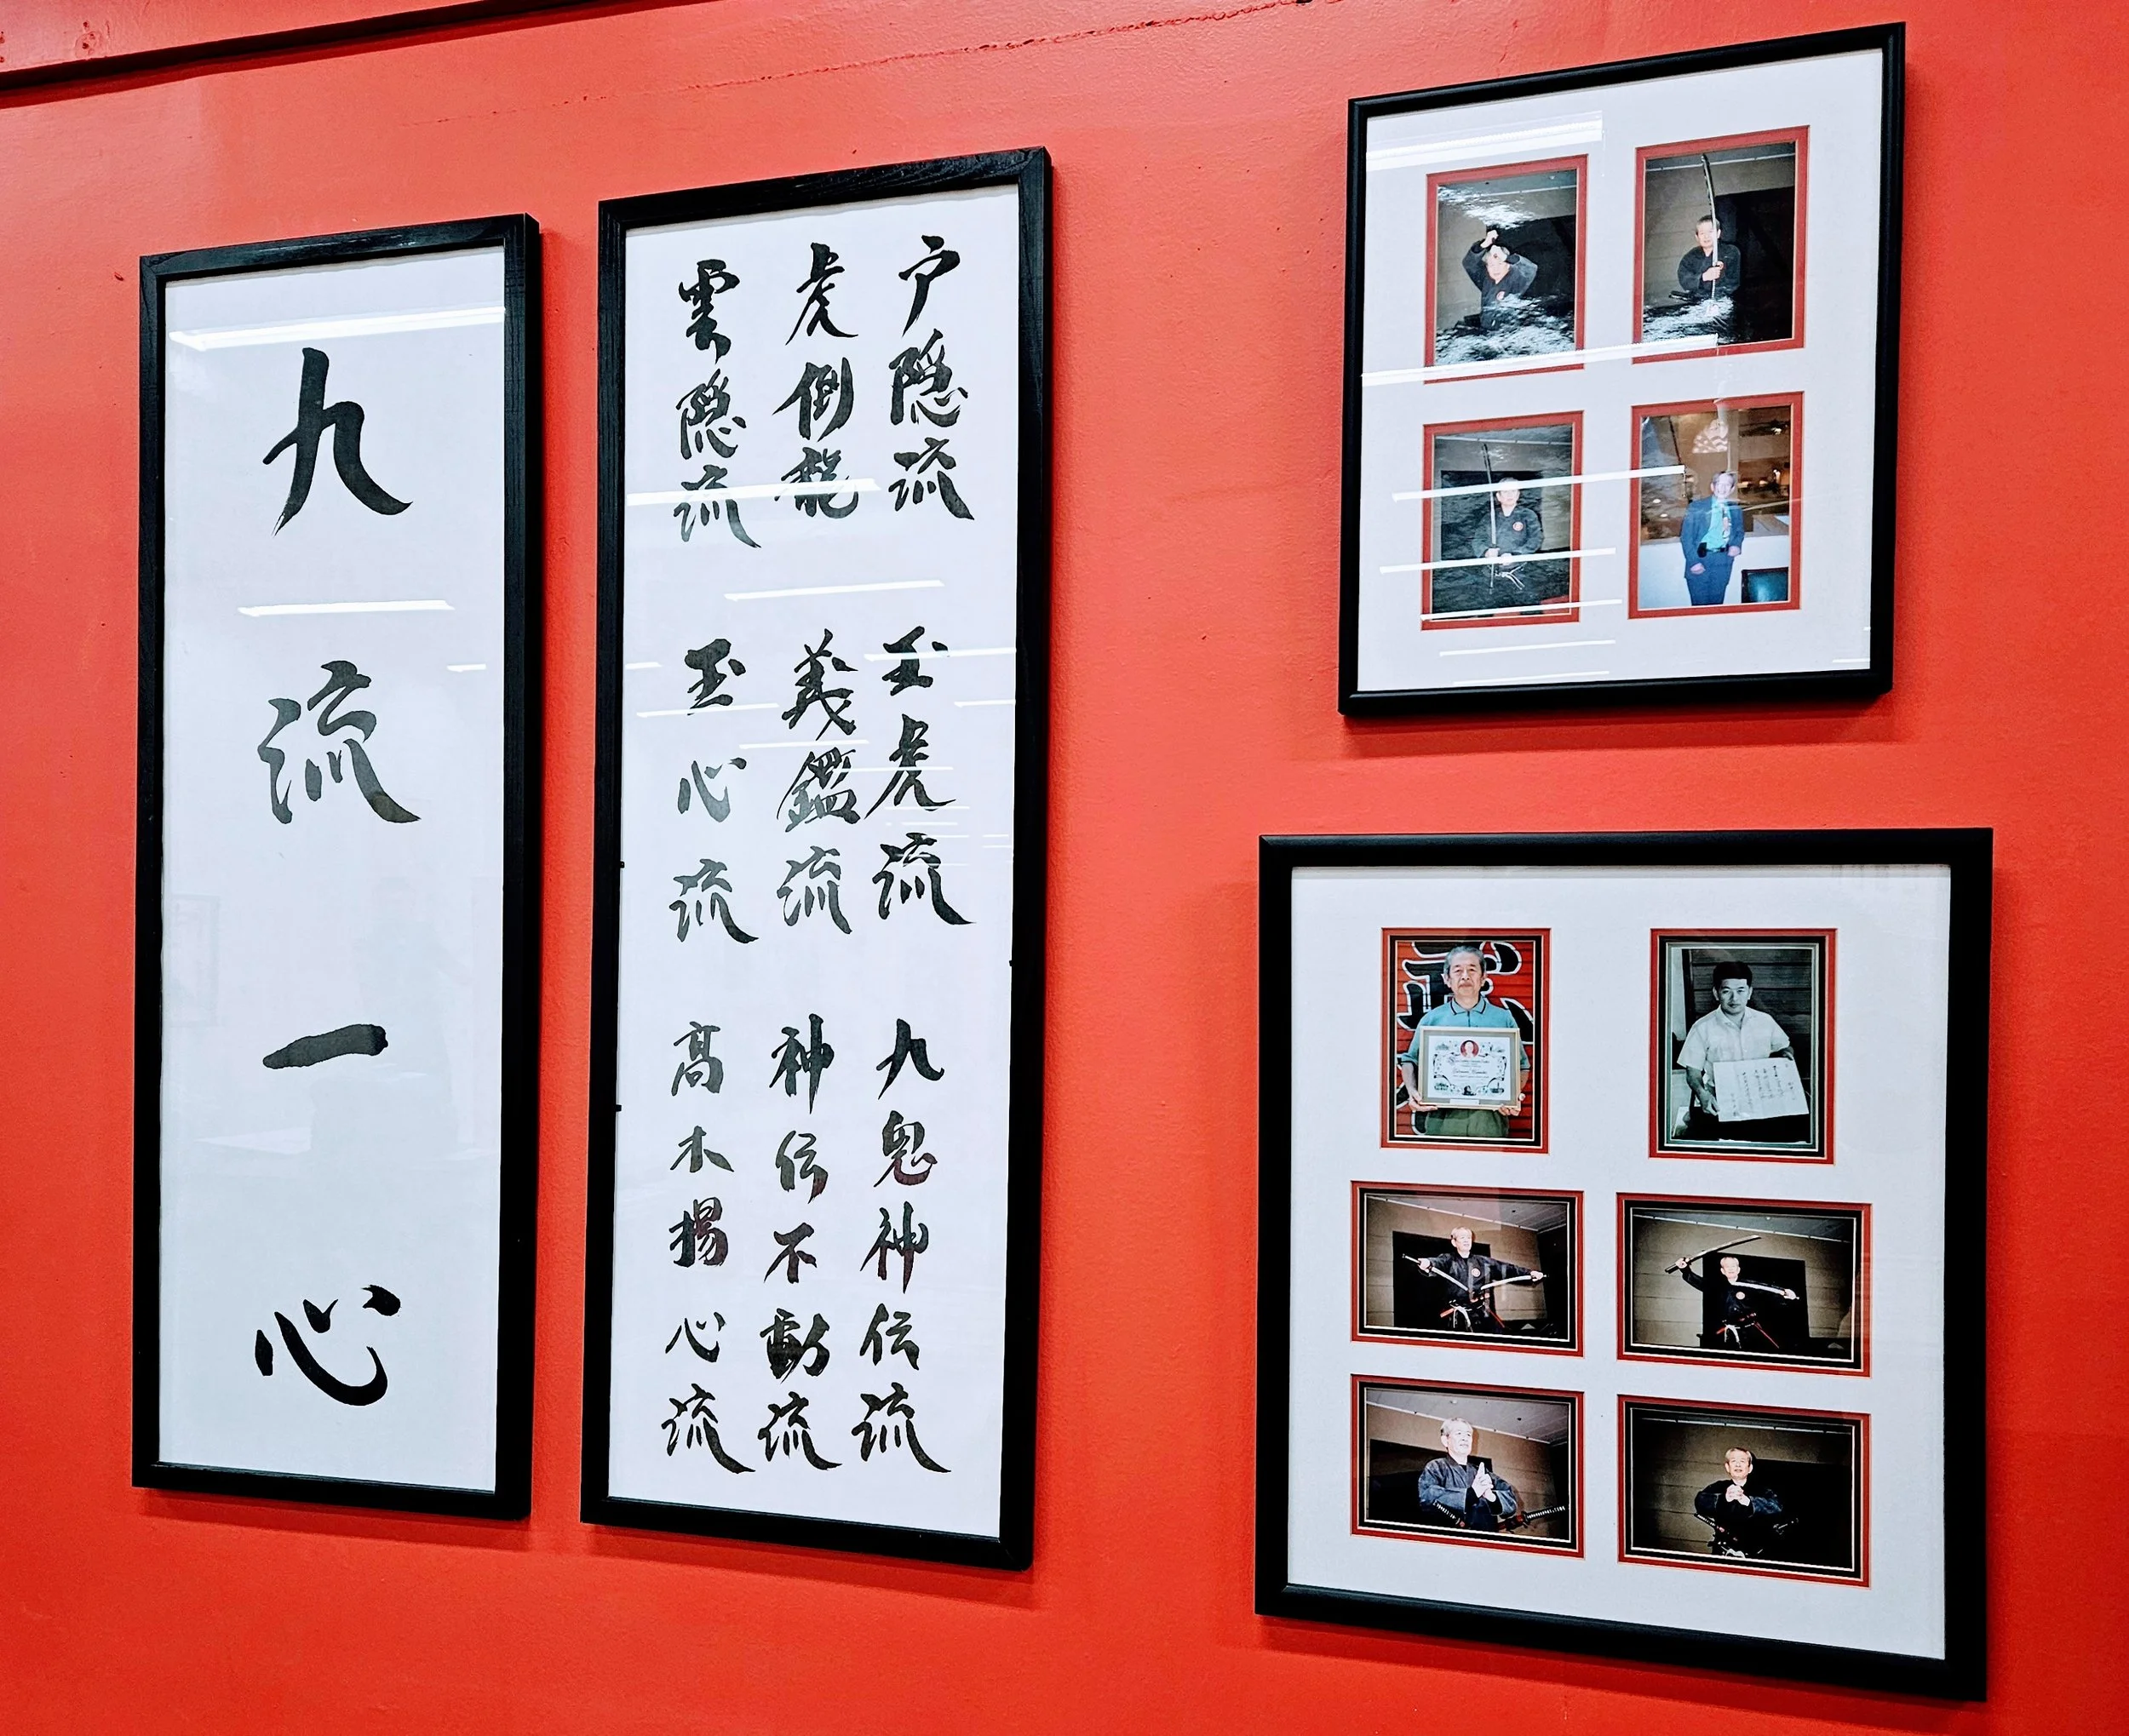 九流一心
戸隠流 玉虎流 九鬼神伝流
虎倒龍 義鑑流 神伝不動流
雲隠流 玉心流 高木揚心流